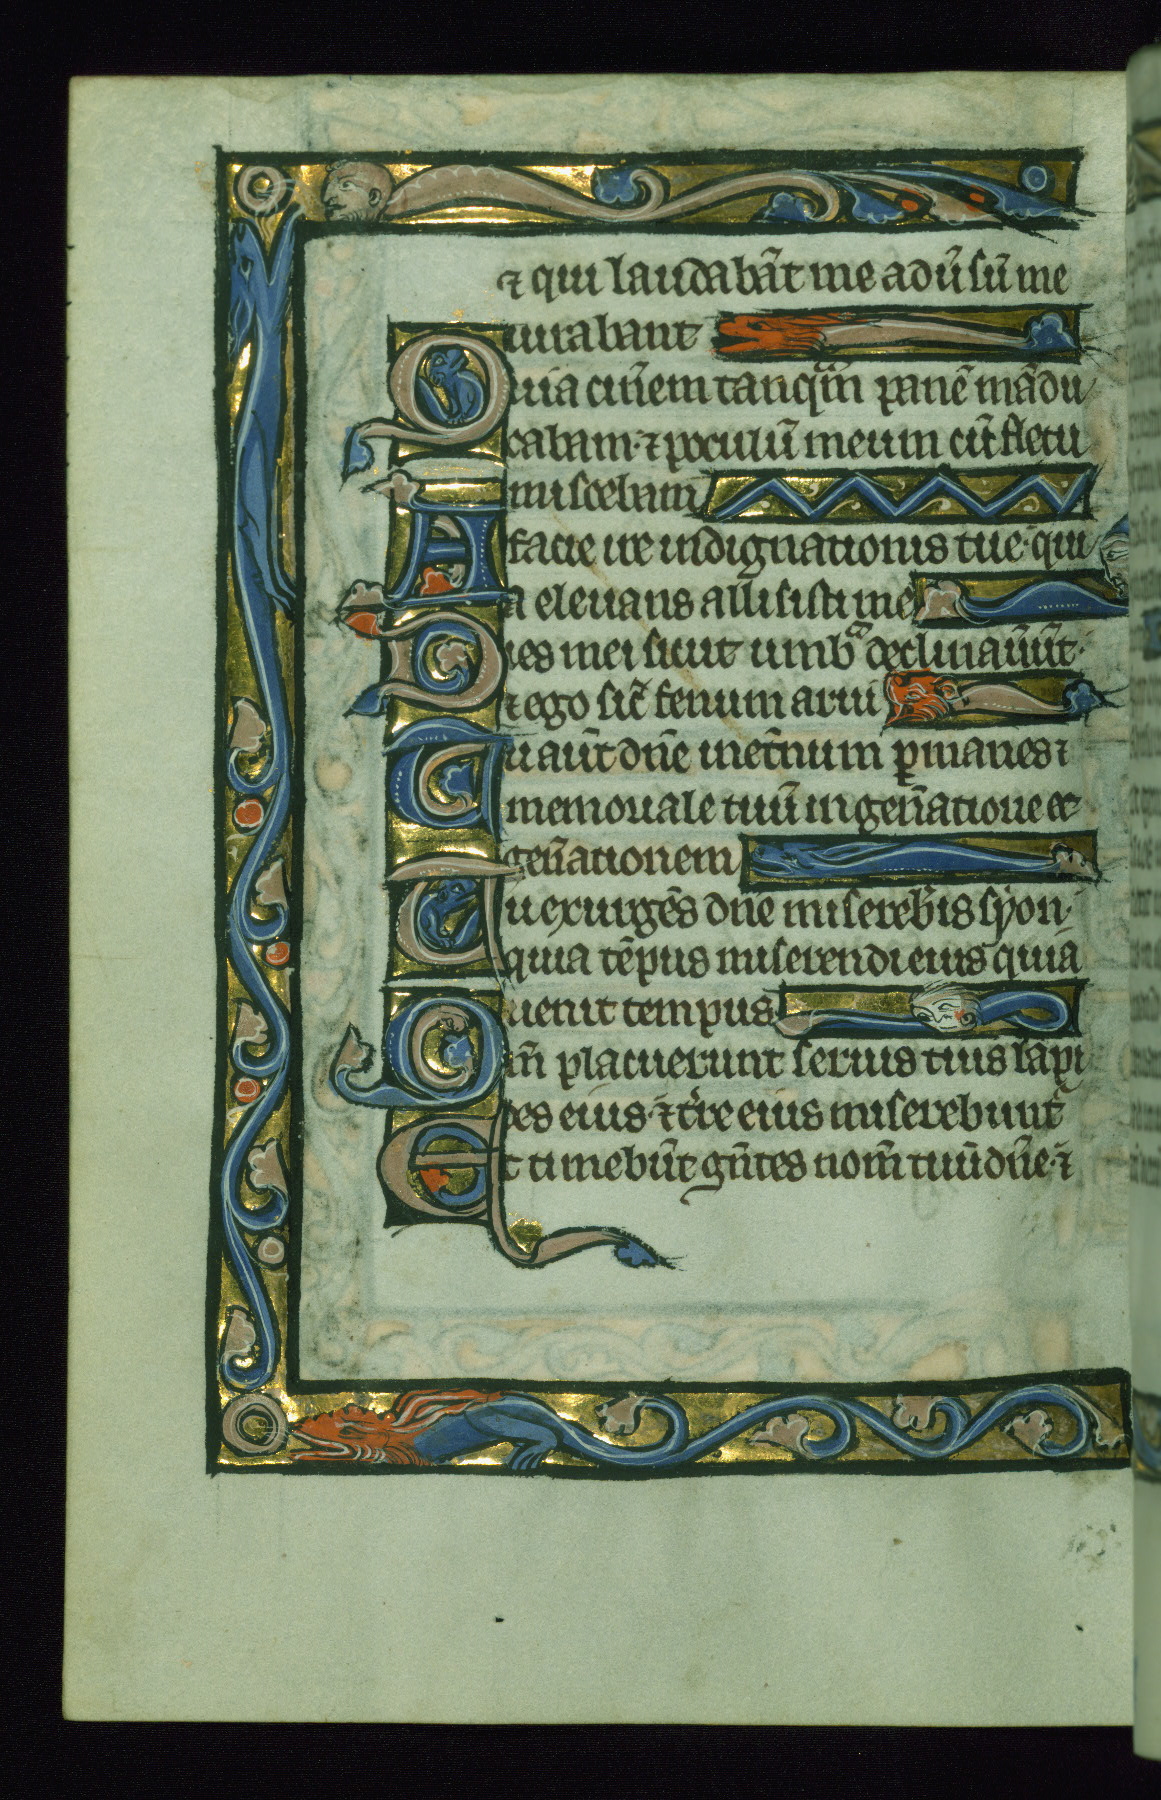 ⁊ qui laudabāt me adv̄sū me
iurabant
Quia cin̄em tanqᵃm panē mādu
cabam·⁊ poculū meum cū fletu
miscebam
A facie ire indignationis tue·qui
a eleuans allisisti me
Dies mei sicut umbᵃ declinaūūt·
⁊ ego sic̄ fenum arui
Tu aūt dn̄e inet̄num ꝑmanes ⁊
memoriale tuū in gen̄atione et
gen̄ationem
Tu exurgēs dn̄e misereb̄is syon·
quia tēpus miserendi eius quia
uenit tempus
Qm̄ placuerunt seruis tuis lapi
des eius·⁊ t̄re eius miserebunt̄
Et timebūt gn̄tes nom̄ tuū dn̄e·⁊